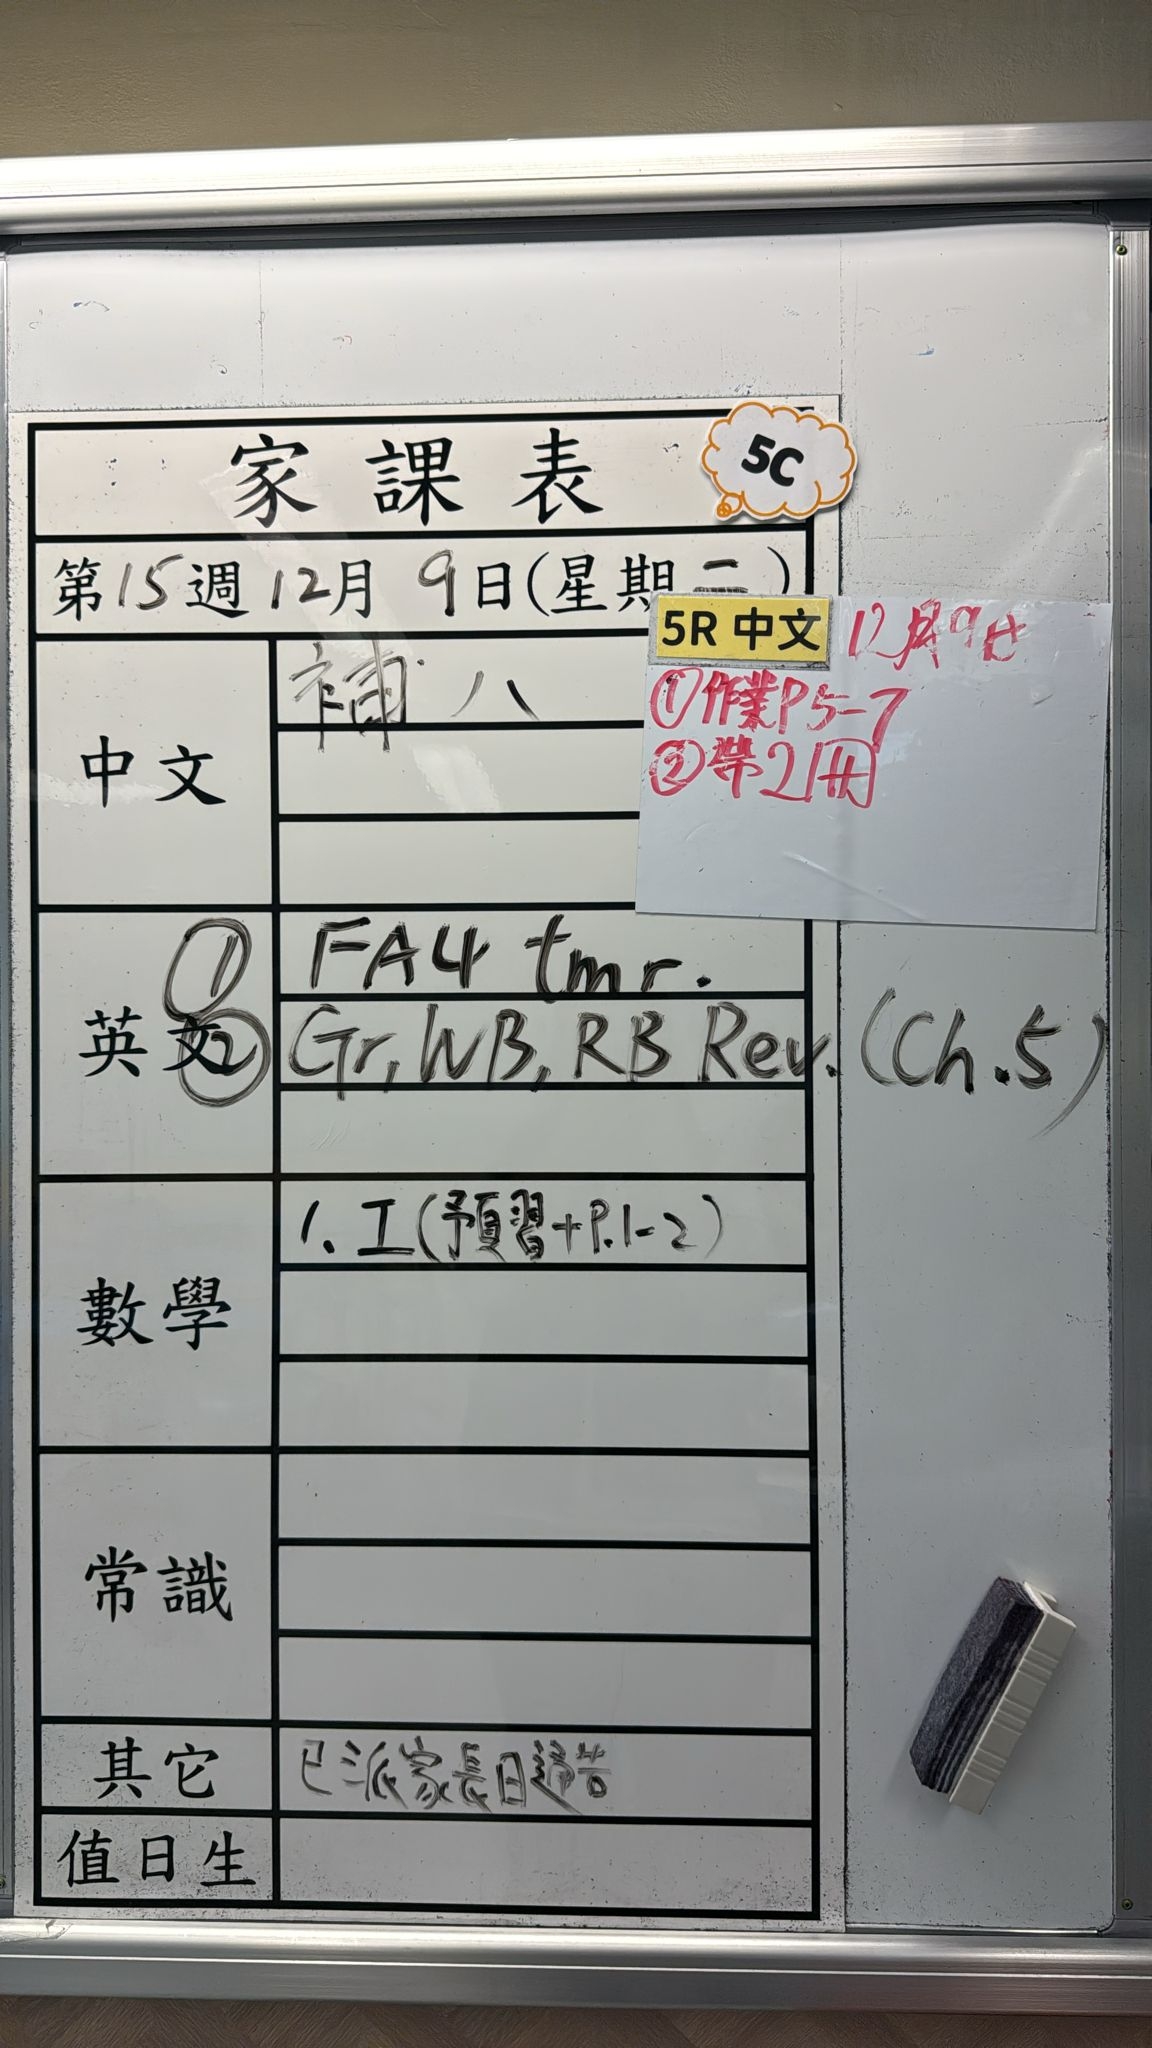 家課表
5C
第15週12月9日(星期二)
中文
補八
5R 中文
12月9日
①作業P5-7
②帶2冊
英文
① FA4 tmr.
② Gr, WB, RB Rev. (Ch.5)
數學
1. 工(預習+P.1-2)
常識
其它
已派家長日通告
值日生